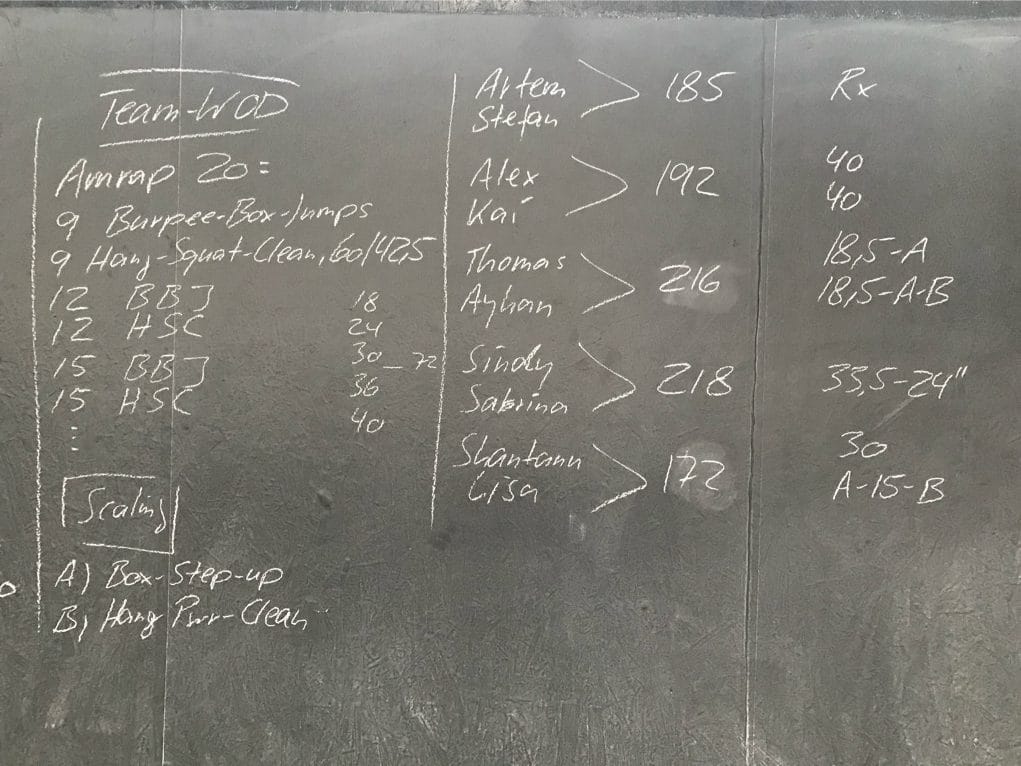 Team-WOD
Amrap 20=
9 Burpee-Box-Jumps
9 Hang-Squat-Clean, 60/42,5
12 BBJ 18
12 HSC 24
15 BBJ 30 - 72
15 HSC 36
40
⋮
Scaling
A) Box-Step-up
B) Hang Pwr-Clean
Artem
Stefan
185 Rx
Alex 40
Kai 40
192
Thomas 18,5-A
Ayhan 18,5-A-B
216
Sindy
Sabrina
218 33,5-24"
Shantanu 30
Lisa A-15-B
172